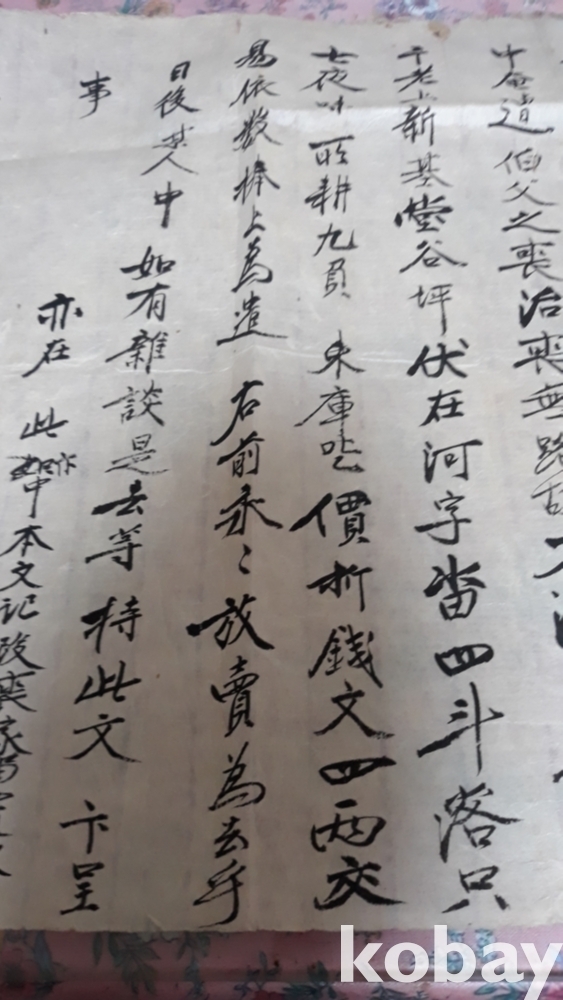 中奄遭伯父之喪治喪無路故不
老上新基堂谷坪伏在河字畓四斗落只
七夜味所耕九負束庫叱價折錢文四兩交
易依數捧上為遣右前永〻放賣為去乎
日後某人中如有雜談是去等持此文卞呈
事
亦在此中本文記段喪家
kobay